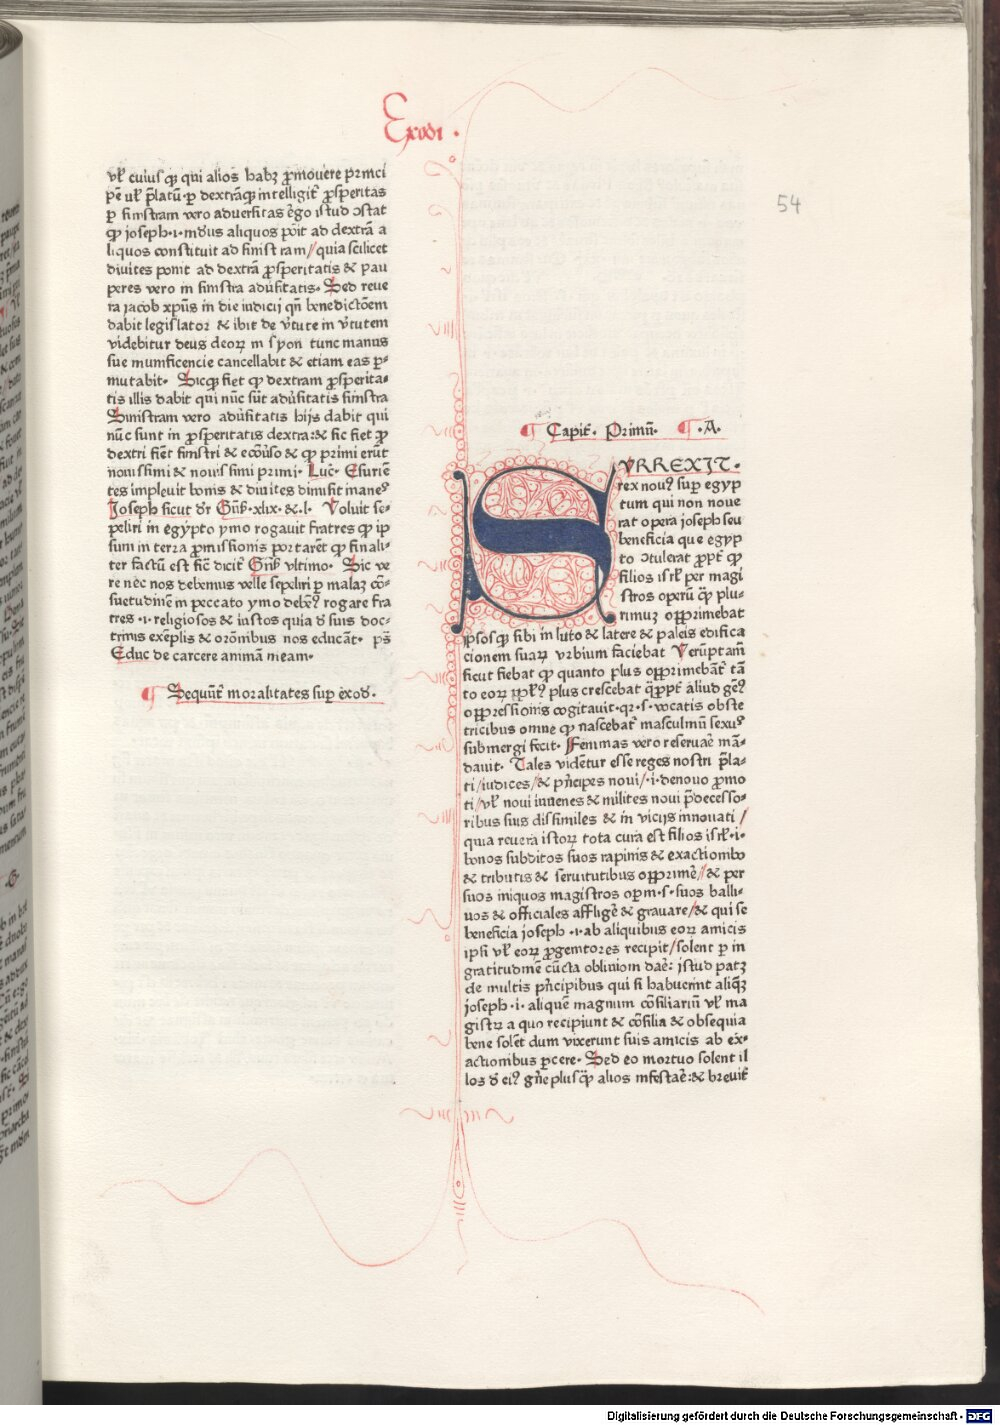 Exodi .
54
vl' cuiuscūq; qui alios habz promouere princi
pē vl' p̄latū· p dextrāq; intelligit' ꝓsperitas
p sinistram vero aduersitas ergo istud ↄstat
ꝙ joseph·i·mūdus aliquos pōit ad dextrā a
liquos constituit ad sinistram/quia scilicet
diuites ponit ad dextrā ꝓsperitatis & pau
peres vero in sinistra adūsitatis· Sed reue
ra jacob xp̄us in die iudicij qn̄ benedictōem
dabit legislator & ibit de v̄tute in v̄tutem
videbitur deus deoꝝ in syon tunc manus
sue munificencie cancellabit & etiam eas p-
mutabit· Sicq; fiet ꝙ dextram ꝓsperita-
tis illis dabit qui nūc sūt adūsitatis sinistra
Sinistram vero adūsitatis hijs dabit qui
nūc sunt in ꝓsperitatis dextra:& sic fiet ꝙ
dextri fient sinistri & ecōuso & ꝙ primi erūt
nouissimi & nouissimi primi· Luc̄· Esurien
tes impleuit bonis & diuites dimisit inanes
Joseph sicut dr̄ Gn̄s·xlix·&·l· Voluit se-
peliri in egypto ymo rogauit fratres ꝙ ip
sum in terra ꝓmissionis portarēt ꝙ finali-
ter factū est sic dicit' Gn̄s vltimo· Sic ve
re nec nos debemus velle sepeliri p malaꝫ cō-
suetudinē in peccato ymo debem⁹ rogare fra
tres·i·religiosos & iustos quia d̄ suis doc-
trinis exēplis & or̄onibus nos educāt· ps̄
Educ de carcere animā meam·
¶ Sequūt' moralitates sup exod̄·
¶ Capit'· Primū· ¶·A·
SVRREXIT·
rex nou⁹ sup egyp
tum qui non noue
rat opera joseph seu
beneficia que egyp
to ↄtulerat ꝓpt' ꝙ
filios isrl' per magi
stros operū ꝙ plu-
rimuꝫ opprimebat
ipsosq; sibi in luto & latere & paleis edifica
cionem suaꝝ vrbium faciebat Verūptam̄
sicut fiebat ꝙ quanto plus opprimebāt' tā
to eoꝝ ppl's plus crescebat q̄ꝓpt' aliud gen⁹
oppressionis cogitauit·qr·s·vocatis obste
tricibus omne ꝙ nascebat' masculinū sexus
submergi fecit· Feminas vero reseruare mā-
dauit· Tales vident̄ur esse reges nostri p̄la-
ti/iudices/& pn̄cipes noui/·i·denouo ꝓmo
ti/vl' noui iuuenes & milites noui p̄decesso-
ribus suis dissimiles & in vicijs innouati/
quia reuera istoꝝ tota cura est filios isrl'·i·
bonos subditos suos rapinis & exactionibꝫ
& tributis & seruitutibus opprimē/& per
suos iniquos magistros opum·s·suos balli-
uos & officiales affligē & grauare/& qui se
beneficia joseph·i·ab aliquibus eoꝝ amicis
ipsi vl' eoꝝ ꝓgenitores recipit/solent p in
gratitudinē cūcta obliuioni dare: jstud patꝫ
de multis pn̄cipibus qui si habuerint aliquē
joseph·i·aliquē magnum cōsiliariū vl' ma
gistꝝ a quo recipiunt & cōsilia & obsequia
bene solēt dum vixerunt suis amicis ab ex-
actionibus ꝑcere· Sed eo mortuo solent il
los d̄ ei⁹ gn̄e plusꝙ alios infestare:& breuit'
Digitalisierung gefördert durch die Deutsche Forschungsgemeinschaft - DFG